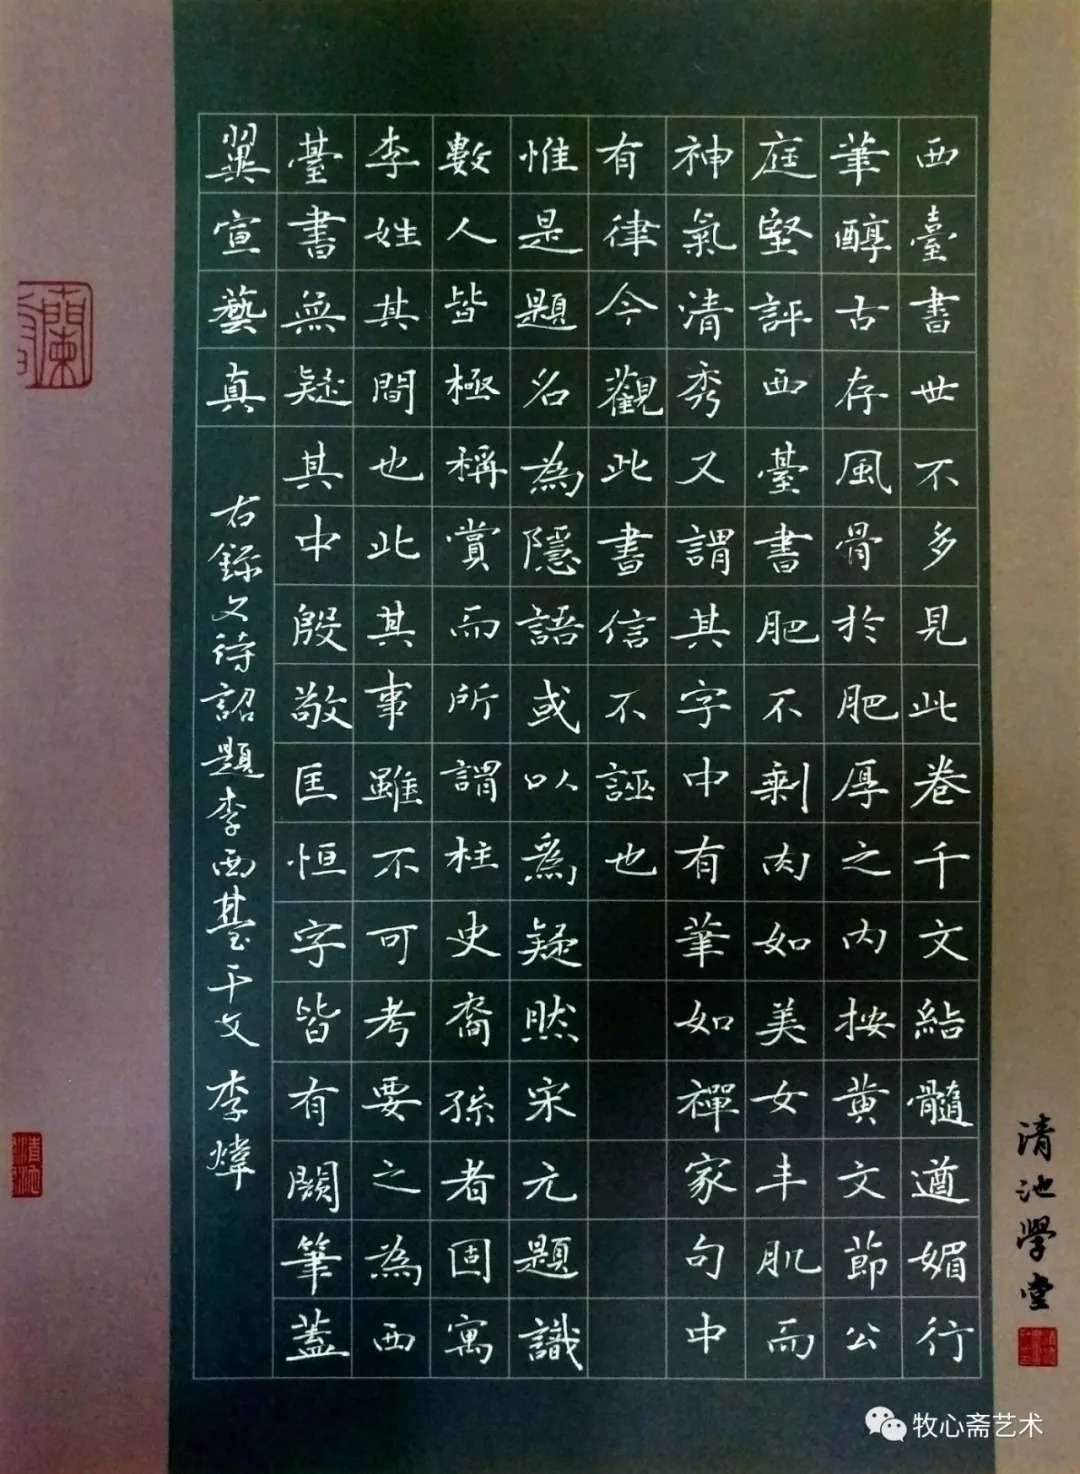 西臺書世不多見此卷千文結髓遒媚行
筆醇古存風骨於肥厚之內按黄文節公
庭堅評西臺書肥不剩肉如美女丰肌而
神氣清秀又謂其字中有筆如禪家句中
有律今觀此書信不誣也
惟是題名為隱語或以爲疑然宋元題識
數人皆極稱賞而所謂柱史裔孫者固寓
李姓其間也此其事雖不可考要之為西
臺書無疑其中殷敬匡恒字皆有闕筆蓋
翼宣藝真
右錄文待詔題李西臺千文 李煒
清池學堂
牧心斋艺术